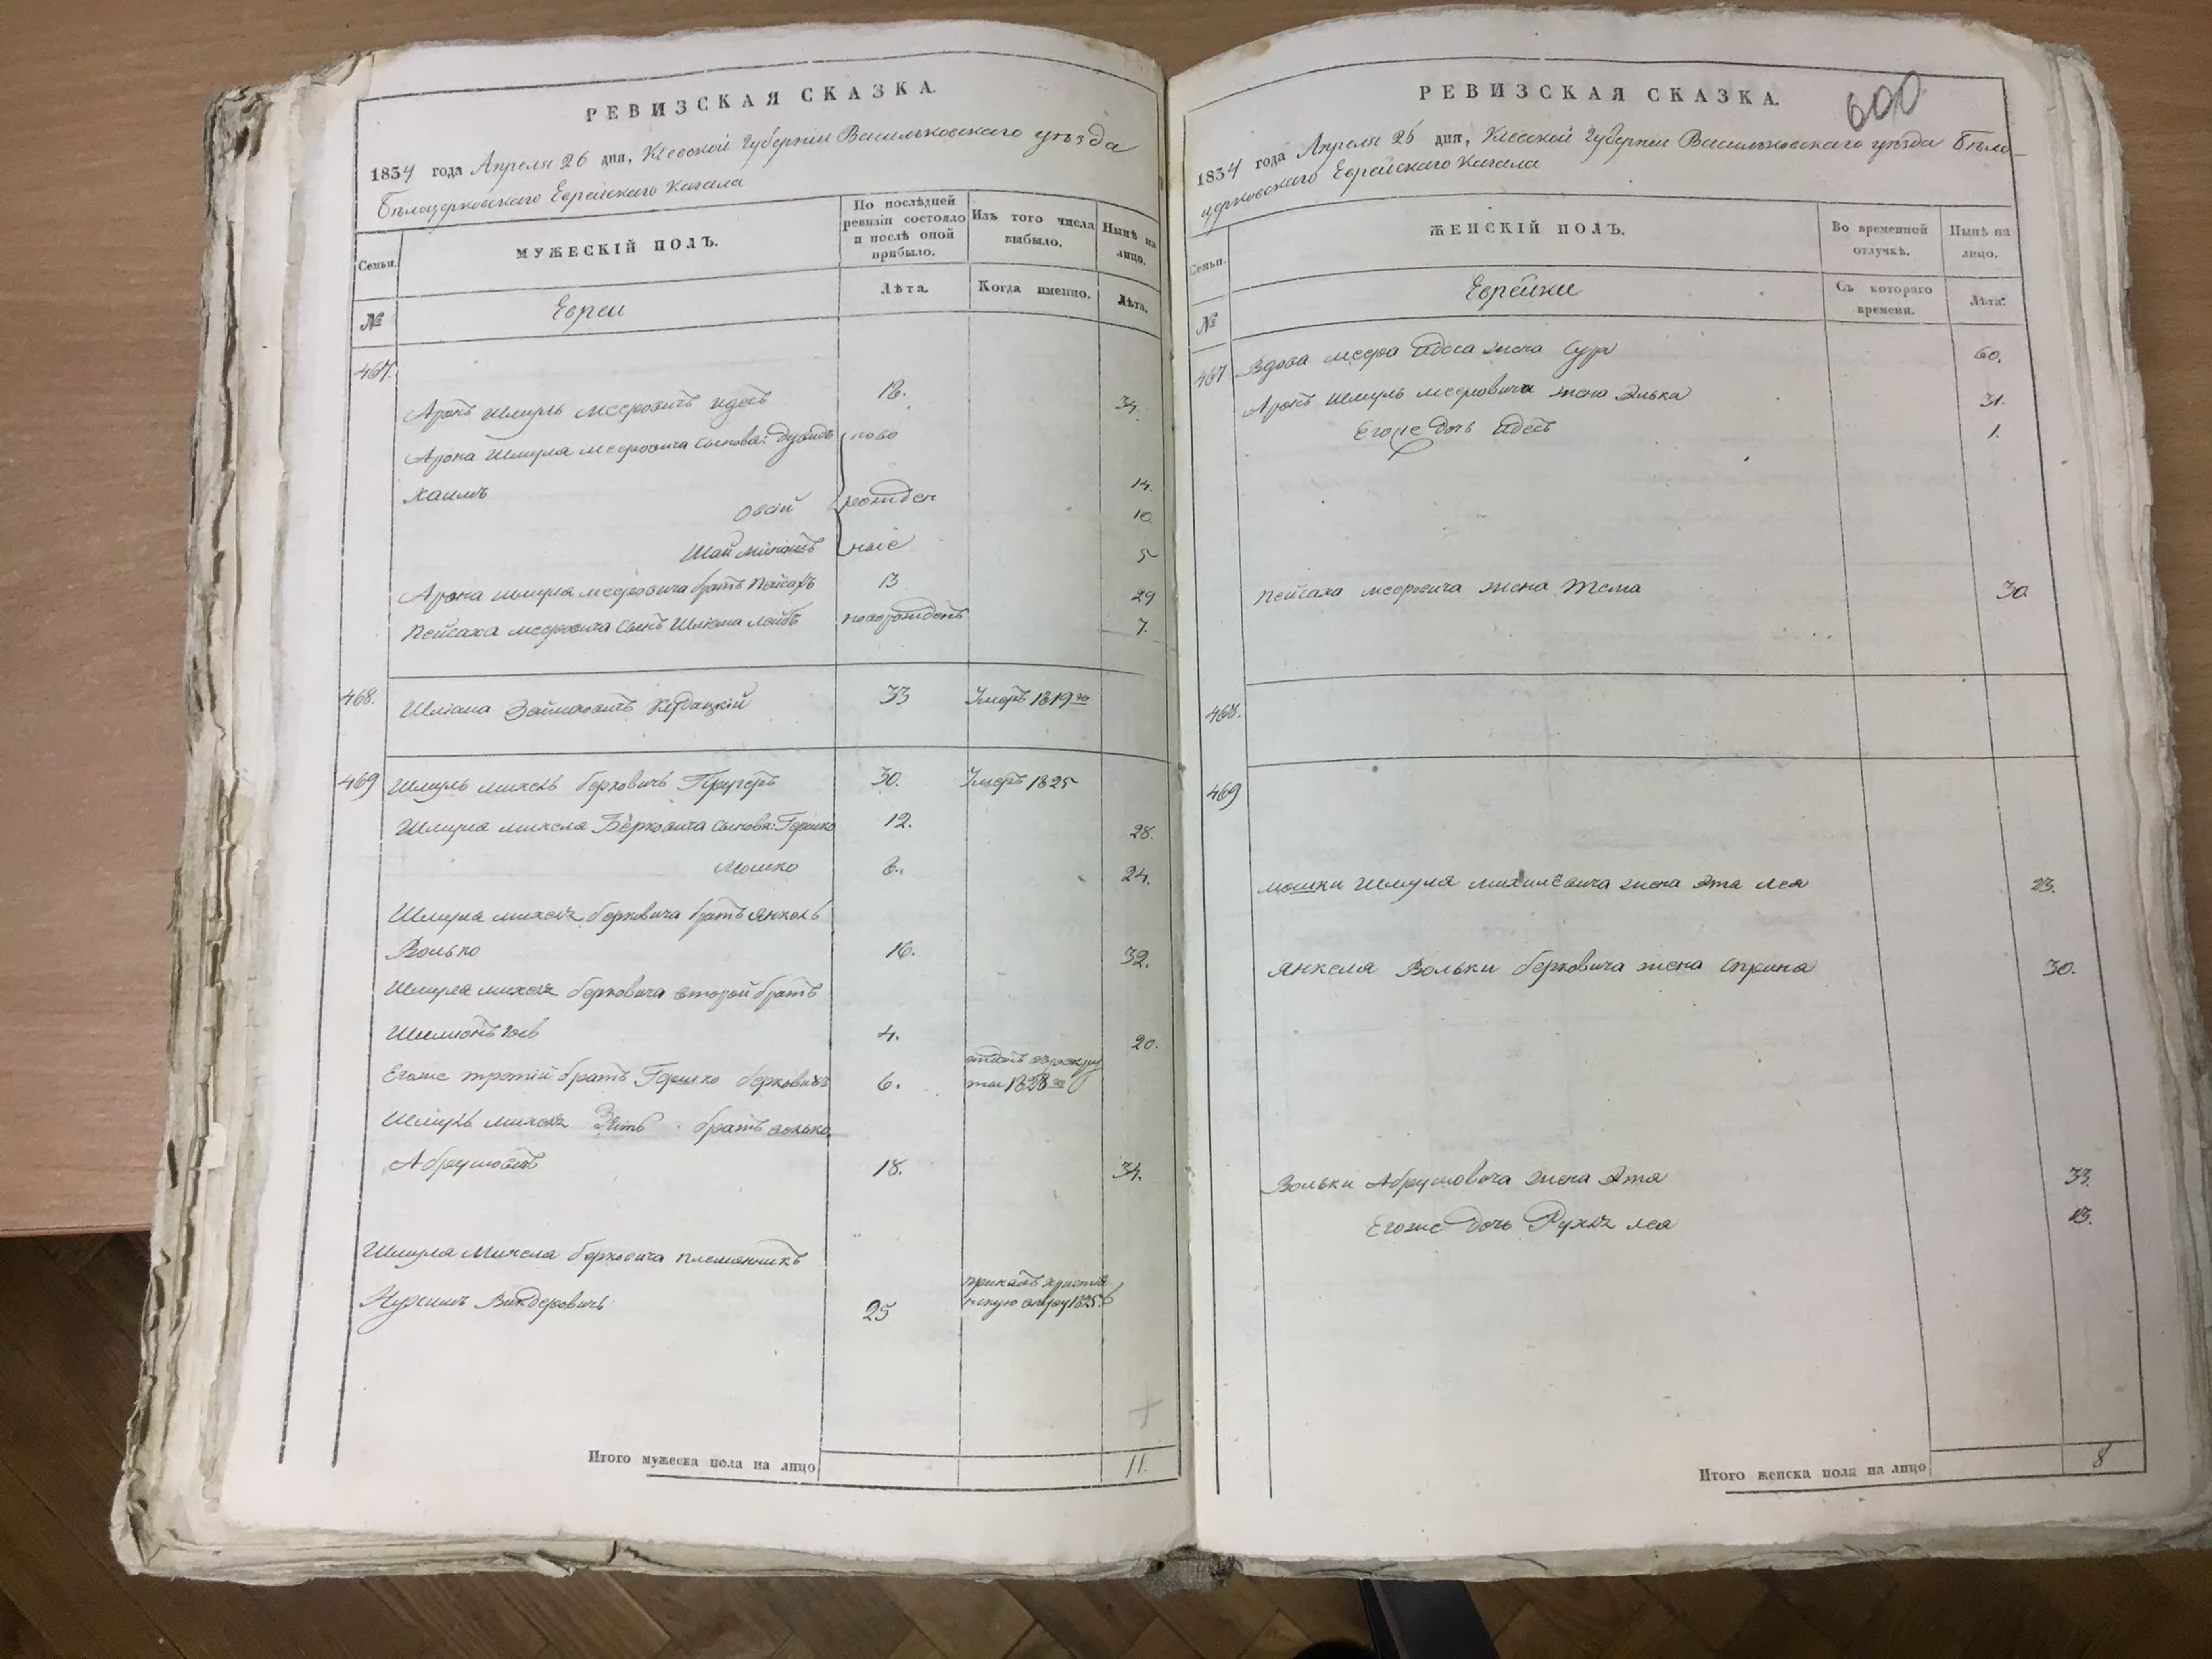 РЕВИЗСКАЯ СКАЗКА.
1834 года Апреля 26 дня, Кіевской Губерніи Васильковскаго уѣзда
Бѣлоцерковскаго Еврейскаго Кагала
Семьи.
МУЖЕСКІЙ ПОЛЪ.
По послѣдней ревизіи состояло и послѣ оной прибыло.
Изъ того числа выбыло.
Нынѣ на лицо.
№
Евреи
Лѣта.
Когда именно.
Лѣта.
467.
Аронъ Шмуль Мееровичъ 18. 34.
Арона Шмуля Мееровича сыновья: Дувидъ ново
Хаимъ 14.
Овсій рожден 10.
Шая ные 5
Арона Шмуля Мееровича братъ Пейсахъ 13 29
Пейсаха Мееровича сынъ Шліома Лейбъ новорожденъ 7.
468. Шліома 33 Умеръ 1819 го
469 Шмуль Михель Берковичъ 30. Умеръ 1825
Шмуля Михеля Берковича сыновья: Гершко 12. 28.
Мошко 8. 24.
Шмуля Михеля Берковича братъ Янкель
Волько 16. 32.
Шмуля Михеля Берковича второй братъ
4. 20.
Егоже третій братъ Гершко Берковичъ 6. отданъ въ рекру
ты 1828 го
Шмуль Михеля Зять братъ Волько
Абрумовичъ 18. 34.
Шмуля Михеля Берковича племянникъ
25 принялъ христіа
нскую вѣру 1825
Итого мужеска пола на лицо 11.
РЕВИЗСКАЯ СКАЗКА.
600
1834 года Апреля 26 дня, Кіевской Губерніи Васильковскаго уѣзда Бѣло-
церковскаго Еврейскаго Кагала
Семьи.
ЖЕНСКІЙ ПОЛЪ.
Во временной отлучкѣ.
Нынѣ на лицо.
№
Еврейки
Съ котораго времени.
Лѣта.
467 Вдова Меера жена Сура 60.
Аронъ Шмуль Мееровича жена Элька 31.
Егоже дочь 1.
Пейсаха Мееровича жена Тема 30
468.
469
Мошки Шмуля Михилевича жена Этя Лея 23.
Янкеля Вольки Берковича жена Сприна 30.
Вольки Абрумовича жена Этя 33.
Егоже дочь Рухля Лея 13.
Итого женска пола на лицо 8